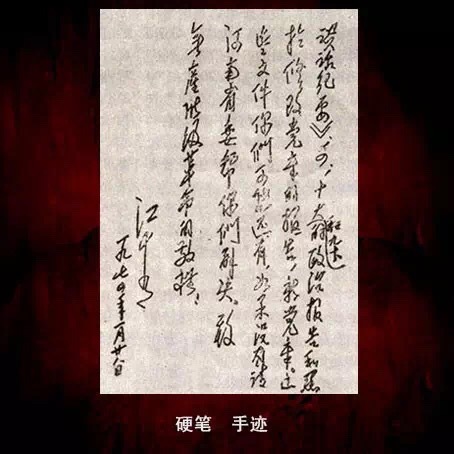 谈话纪要》、十大的政治报告和关
于修改党章的报告,新党章。这
些文件你們可能还有,如果没有请
河南省委帮你們解决。致
无产阶级革命的敬礼!
江青
一九七四年一月廿日
硬笔 手迹